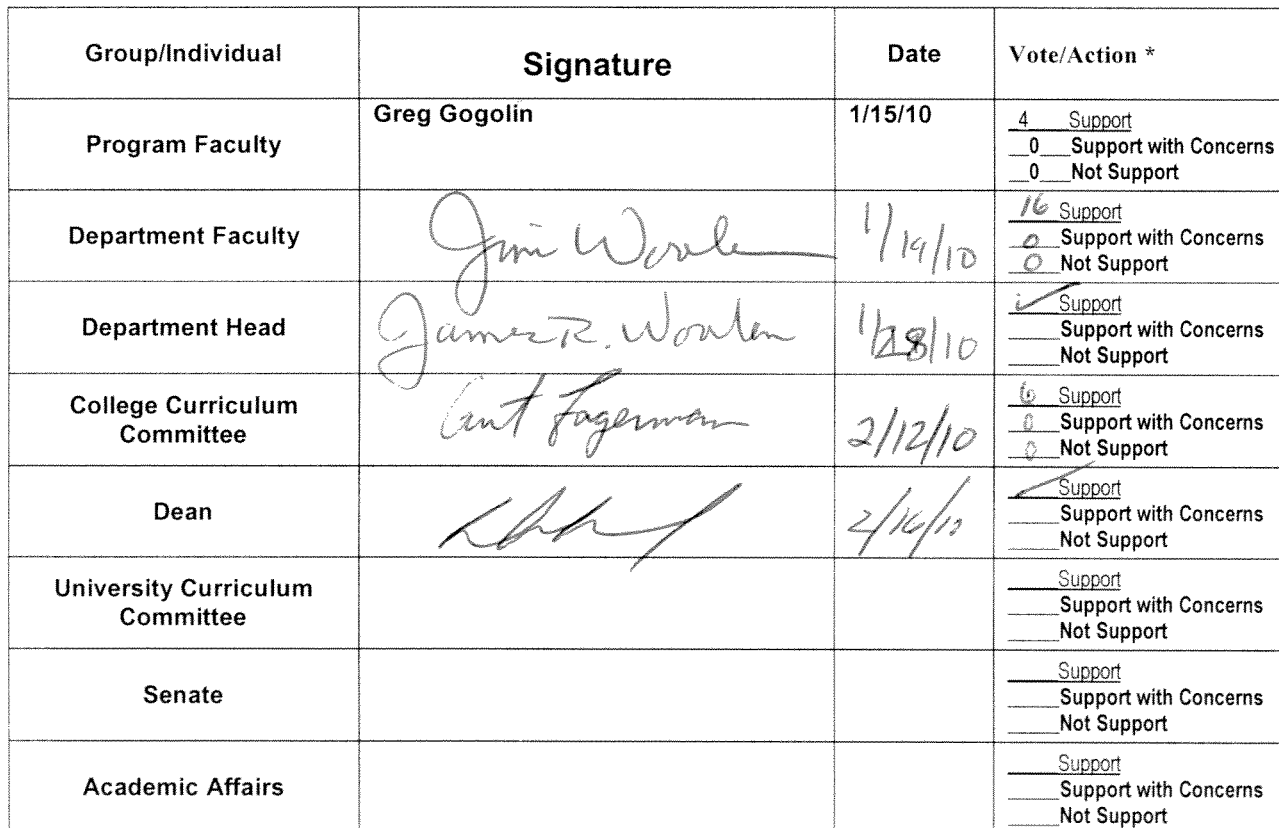 Group/Individual Signature Date Vote/Action *
Program Faculty Greg Gogolin 1/15/10 4 Support
0 Support with Concerns
0 Not Support
Department Faculty Jim Woolen 1/19/10 16 Support
0 Support with Concerns
0 Not Support
Department Head James R. Woolen 1/28/10 ✓ Support
Support with Concerns
Not Support
College Curriculum
Committee Fagerman 2/12/10 6 Support
0 Support with Concerns
0 Not Support
Dean 2/16/10 ✓ Support
Support with Concerns
Not Support
University Curriculum
Committee Support
Support with Concerns
Not Support
Senate Support
Support with Concerns
Not Support
Academic Affairs Support
Support with Concerns
Not Support